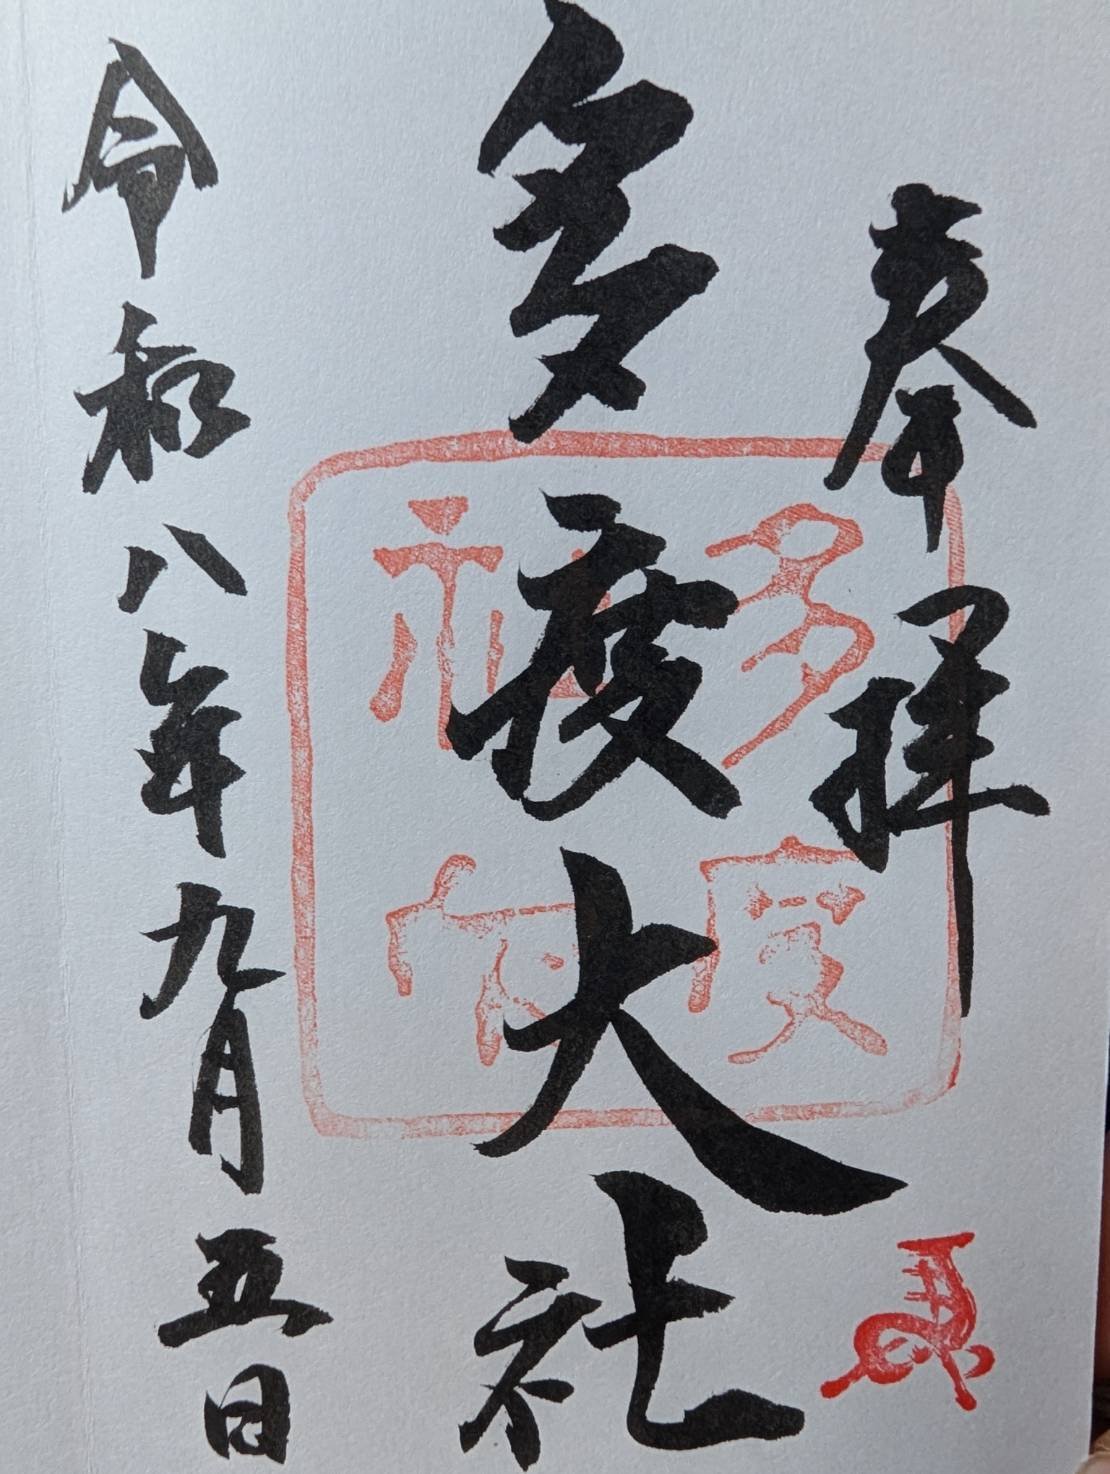 奉拝
多度大社
多度
社印
令和八年九月五日